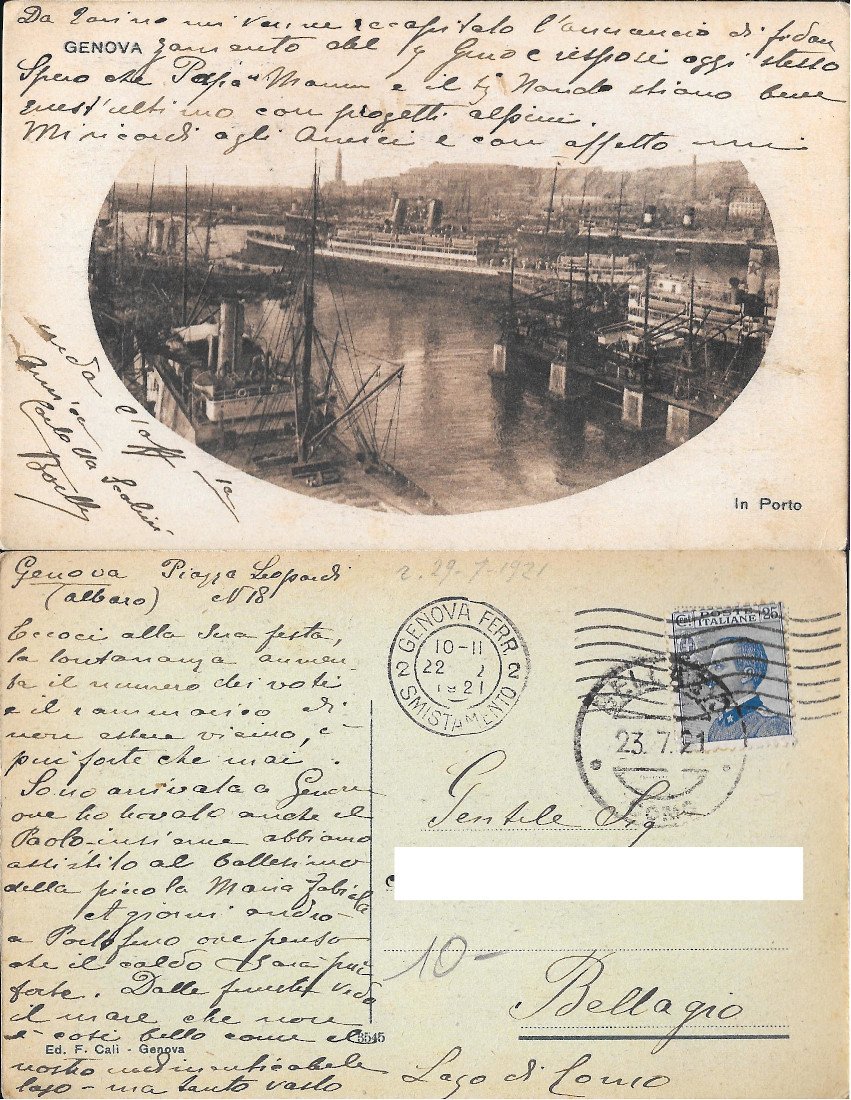 Da Torino mi venne recapitato l'annuncio di fidan
GENOVA
zamento del g Gino e risposi oggi stesso
Spero che Papà Mamma e il Nando stiano bene
quest'ultimo con progetti alpini.
Mi ricordi agli Amici e con affetto mi
creda l'aff
amica
Carlotta
In Porto
Genova Piazza Leopardi
(albaro) N 18
r. 29-7-1921
Eccoci alla Sua festa,
la lontananza aumen-
ta il numero dei voti
e il rammarico di
non essere vicino, è
più forte che mai.
Sono arrivata a Genova
ove ho trovato anche il
Paolo-insieme abbiamo
assistito al battesimo
della piccola Maria Fabiola
A giorni andrò
a Portofino ove penso
che il caldo sarà più
forte. Dalle finestre vedo
il mare che non
è così bello come il
nostro indimenticabile
lago - ma tanto vasto
Ed. F. Cali - Genova
3545
GENOVA FERR.
10-11
22
1921
2 SMISTAMENTO 2
POSTE ITALIANE
Cent 25
BELLAGIO
23.7.21
COMO
Gentile Sig
10-
Bellagio
Lago di Como